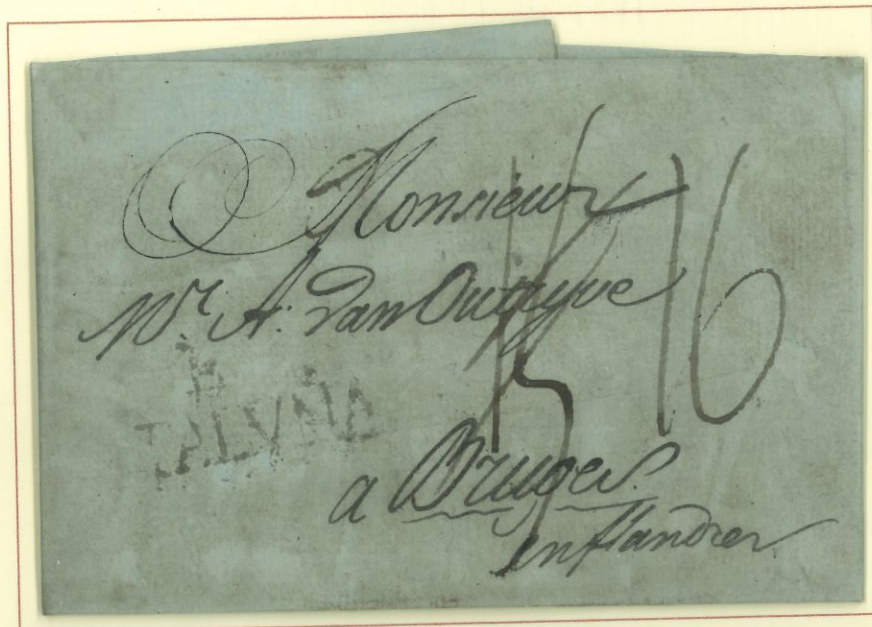 Monsieur
Mr. A: van Outryve
16
a Bruges.
en flandres